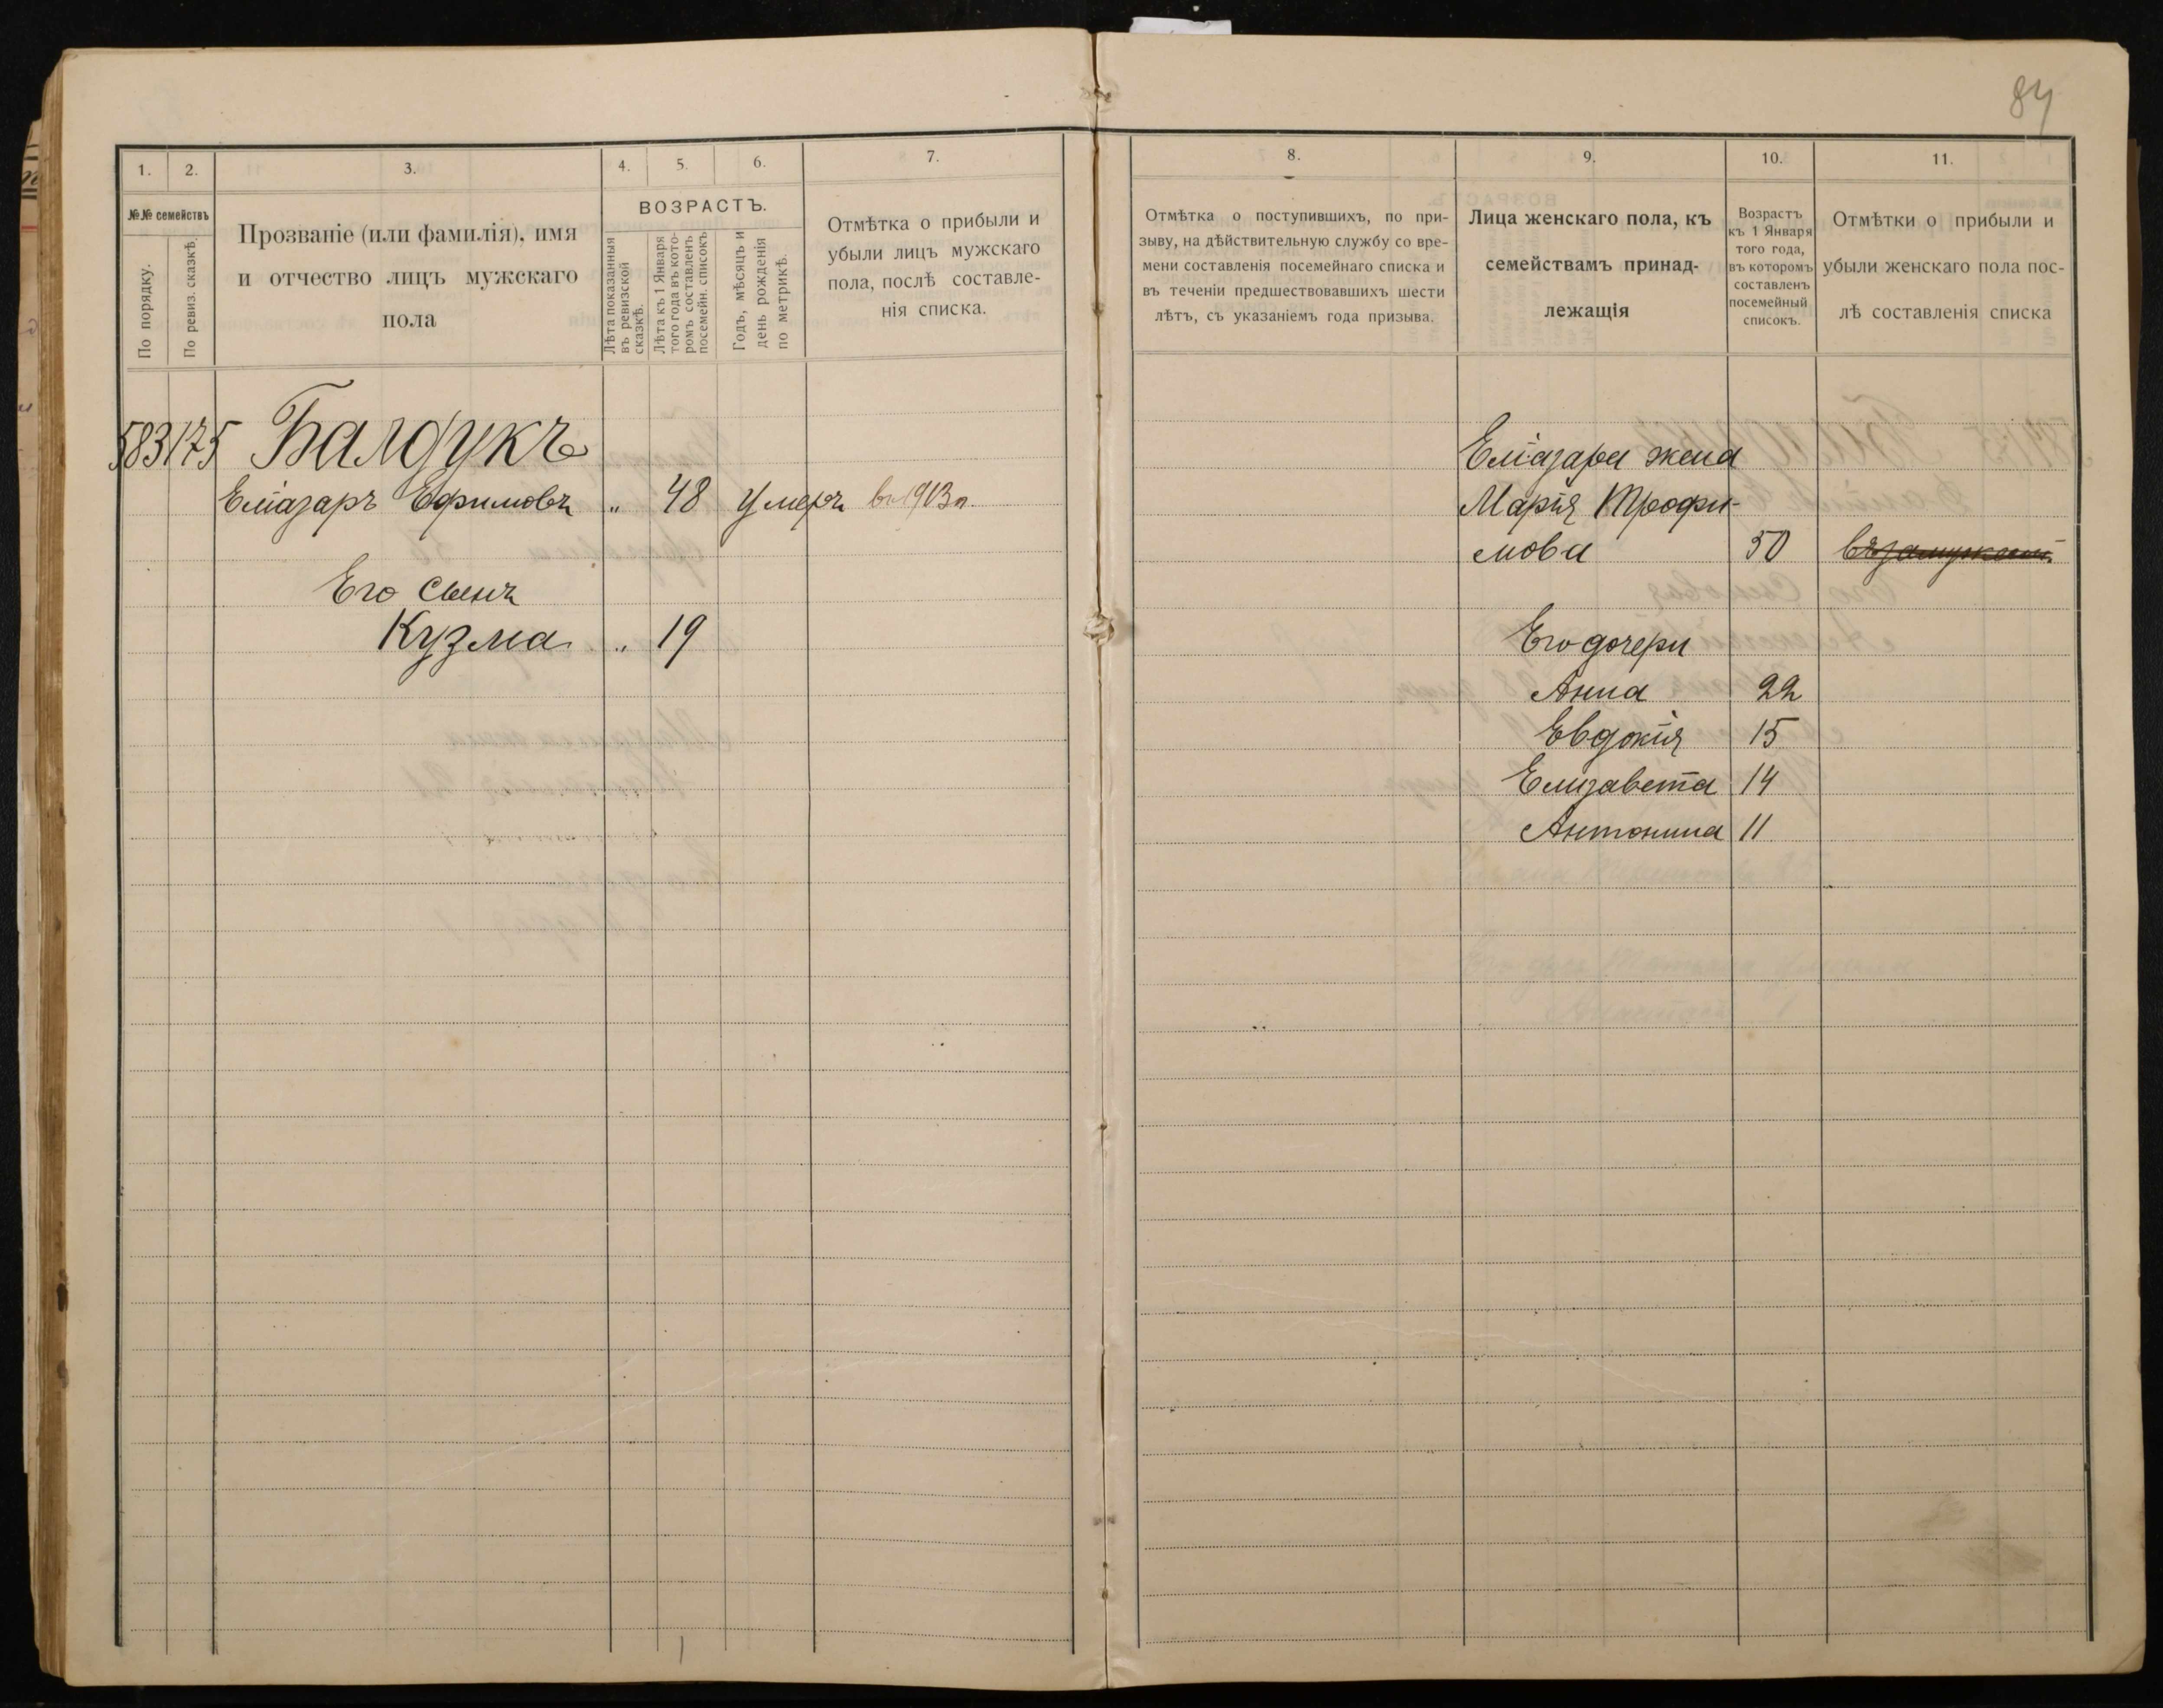 84
1. 2. 3. 4. 5. 6. 7.
№№ семействъ
По порядку.
По ревиз. сказкѣ.
Прозваніе (или фамилія), имя
и отчество лицъ мужскаго
пола
ВОЗРАСТЪ.
Лѣта показанныя
въ ревизской
сказкѣ.
Лѣта къ 1 Января
того года въ кото-
ромъ составленъ
посемейн. списокъ
Годъ, мѣсяцъ и
день рожденія
по метрикѣ.
Отмѣтка о прибыли и
убыли лицъ мужскаго
пола, послѣ составле-
нія списка.
583 175 Балдукъ
Еліазаръ Ефимовъ „ 48 Умеръ въ 1913 г.
Его сынъ
Кузма „ 19
8. 9. 10. 11.
Отмѣтка о поступившихъ, по при-
зыву, на дѣйствительную службу со вре-
мени составленія посемейнаго списка и
въ теченіи предшествовавшихъ шести
лѣтъ, съ указаніемъ года призыва.
Лица женскаго пола, къ
семействамъ принад-
лежащія
Возрастъ
къ 1 Января
того года,
въ которомъ
составленъ
посемейный
списокъ.
Отмѣтки о прибыли и
убыли женскаго пола пос-
лѣ составленія списка
Еліазара жена
Марія Трофи-
мова 50
Его дочери
Анна 22
Евдокія 15
Елизавета 14
Антонина 11